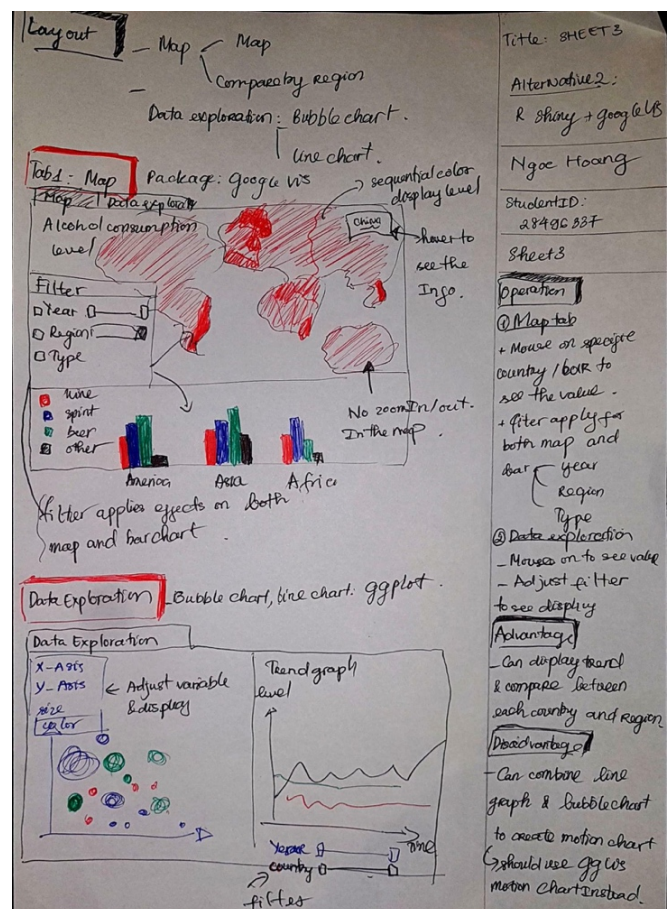 Layout
- Map
Map
Compare by Region
-
Data exploration: Bubble chart.
line chart.
Tab1: Map
Package: google vis
sequential color
display level
Map
Data explorati
Alcohol consumption
level
China
hover to
see the
Info.
Filter
Year
Region
Type
wine
spirit
beer
other
No zoom In/out.
In the map.
America
Asia
Africa
filter applies effects on both
map and barchart.
Data Exploration
- Bubble chart, line chart: ggplot.
Data Exploration
X-Axis
Y-Axis
size
color
← Adjust variable
& display
Trend graph
level
Time
Year
country
filter
Title: SHEET3
Alternative 2:
R shiny + google Vis
Ngoc Hoang
Student ID:
28496337
Sheet3
Operation
① Map tab
+ Mouse on specific
country / bar to
see the value.
+ filter apply for
both map and
bar
year
Region
Type
② Data exploration
- Mouse on to see value
- Adjust filter
to see display
Advantage
- Can display trend
& compare between
each country and Region
Disadvantage
- Can combine line
graph & bubble chart
to create motion chart
should use ggvis
motion chart Instead.